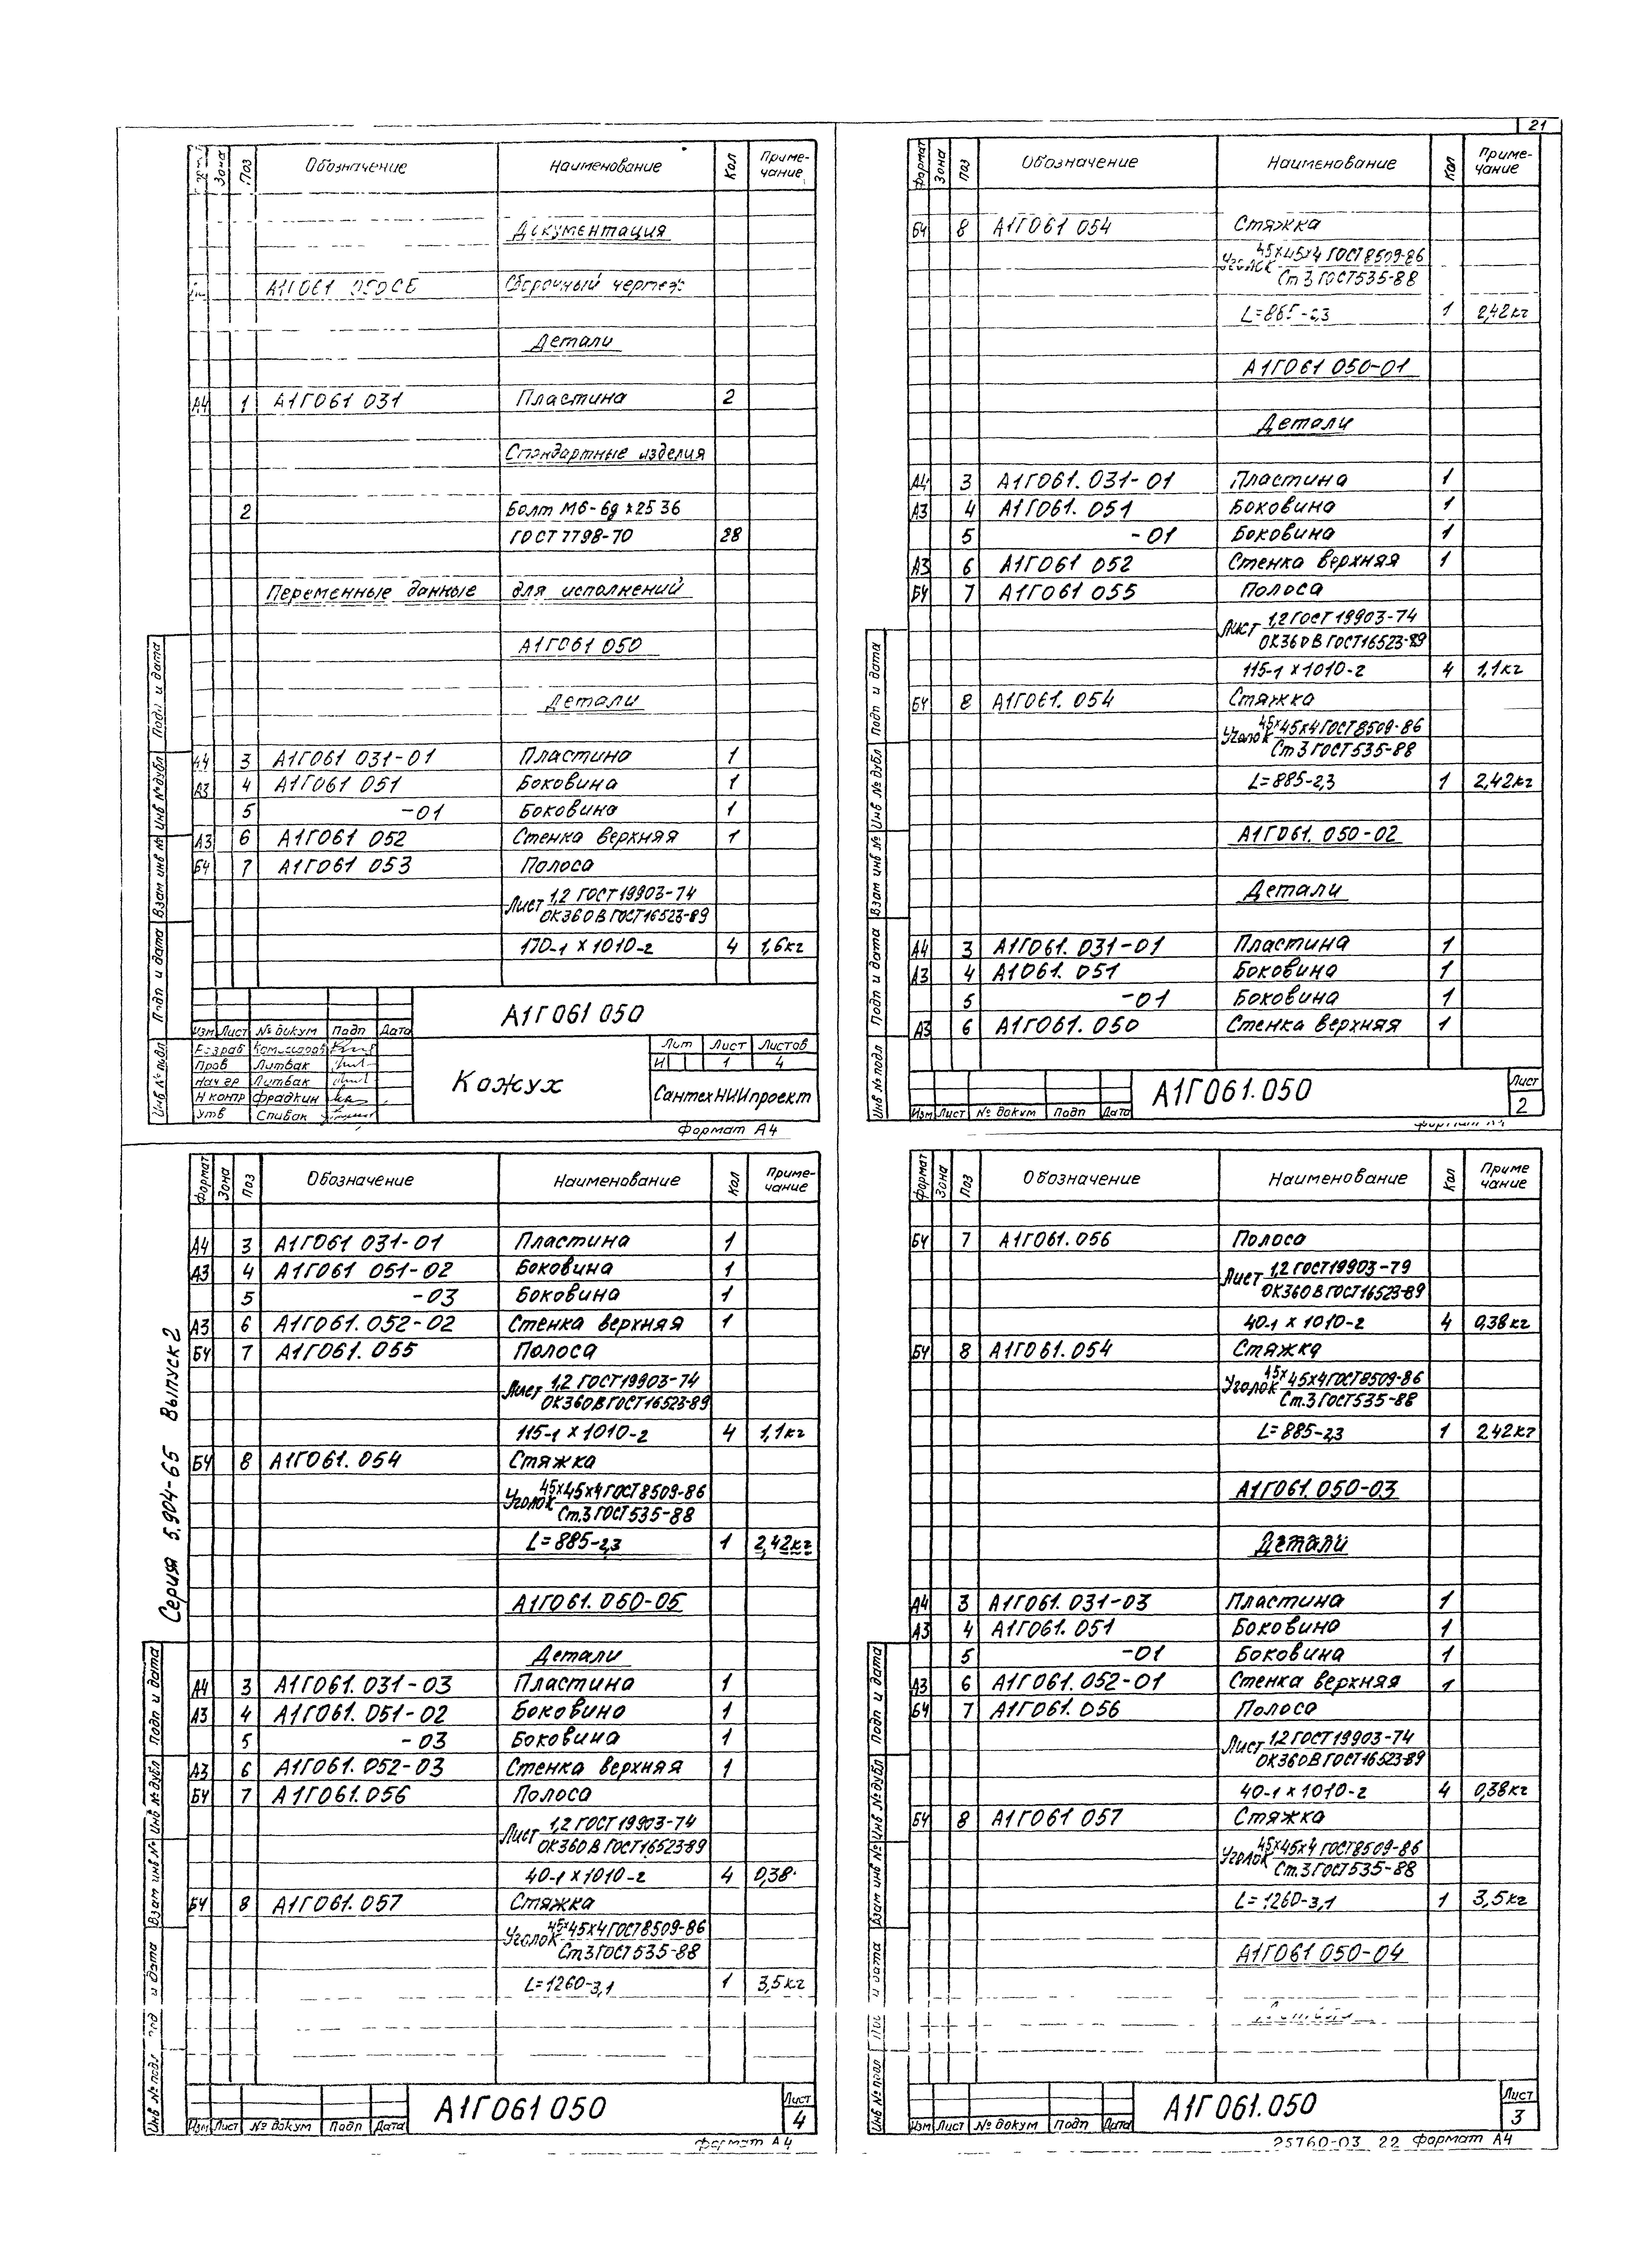 21
Формат Зона Поз Обозначение Наименование Кол Приме-
чание
Документация
А1Г061 050СБ Сборочный чертеж
Детали
А4 1 А1Г061 031 Пластина 2
Стандартные изделия
2 Болт М6-6g х 25 36
ГОСТ 7798-70 28
Переменные данные для исполнений
А1Г061 050
Детали
А4 3 А1Г061 031-01 Пластина 1
А3 4 А1Г061 051 Боковина 1
5 -01 Боковина 1
А3 6 А1Г061 052 Стенка верхняя 1
БЧ 7 А1Г061 053 Полоса
Лист 1,2 ГОСТ 19903-74
ОК360В ГОСТ16523-89
170-1 х 1010-2 4 1,6кг
А1Г061 050
Изм Лист № докум Подп Дата
Разраб Комиссаров
Пров Литвак
Нач гр Литвак
Н контр Фрадкин
Утв Спивак
Кожух
Лит Лист Листов
И 1 4
СантехНИИпроект
Формат А4
Инв № подл Подп и дата Взам инв № Инв № дубл Подп и дата
Формат Зона Поз Обозначение Наименование Кол Приме-
чание
БЧ 8 А1Г061 054 Стяжка
Уголок 45х45х4 ГОСТ8509-86
Ст 3 ГОСТ535-88
L=885-2,3 1 2,42кг
А1Г061 050-01
Детали
А4 3 А1Г061. 031-01 Пластина 1
А3 4 А1Г061. 051 Боковина 1
5 -01 Боковина 1
А3 6 А1Г061 052 Стенка верхняя 1
БЧ 7 А1Г061 055 Полоса
Лист 1,2 ГОСТ 19903-74
ОК360В ГОСТ16523-89
115-1 х 1010-2 4 1,1кг
БЧ 8 А1Г061. 054 Стяжка
Уголок 45х45х4 ГОСТ8509-86
Ст 3 ГОСТ535-88
L=885-2,3 1 2,42кг
А1Г061. 050-02
Детали
А4 3 А1Г061. 031-01 Пластина 1
А3 4 А1061. 051 Боковина 1
5 -01 Боковина 1
А3 6 А1Г061. 050 Стенка верхняя 1
Изм Лист № докум Подп Дата
А1Г061.050
Лист
2
Формат А4
Инв № подл Подп и дата Взам инв № Инв № дубл Подп и дата
Формат Зона Поз Обозначение Наименование Кол Приме-
чание
А4 3 А1Г061 031-01 Пластина 1
А3 4 А1Г061 051-02 Боковина 1
5 -03 Боковина 1
А3 6 А1Г061. 052-02 Стенка верхняя 1
БЧ 7 А1Г061. 055 Полоса
Лист 1,2 ГОСТ19903-74
ОК360В ГОСТ16523-89
115-1 х 1010-2 4 1,1кг
БЧ 8 А1Г061. 054 Стяжка
Уголок 45х45х4 ГОСТ8509-86
Ст.3 ГОСТ535-88
L=885-2,3 1 2,42кг
А1Г061. 050-05
Детали
А4 3 А1Г061. 031-03 Пластина 1
А3 4 А1Г061. 051-02 Боковина 1
5 -03 Боковина 1
А3 6 А1Г061. 052-03 Стенка верхняя 1
БЧ 7 А1Г061.056 Полоса
Лист 1,2 ГОСТ 19903-74
ОК360В ГОСТ16523-89
40-1 х 1010-2 4 0,38
БЧ 8 А1Г061. 057 Стяжка
Уголок 45х45х4 ГОСТ8509-86
Ст3 ГОСТ535-88
L=1260-3,1 1 3,5кг
Изм Лист № докум Подп Дата
А1Г061 050
Лист
4
Формат А4
Серия 5.904-65 Выпуск 2
Инв № подл Подп и дата Взам инв № Инв № дубл Подп и дата
Формат Зона Поз Обозначение Наименование Кол Приме
чание
БЧ 7 А1Г061.056 Полоса
Лист 1,2 ГОСТ19903-79
ОК360В ГОСТ16523-89
40-1 х 1010-2 4 0,38кг
БЧ 8 А1Г061.054 Стяжка
Уголок 45х45х4 ГОСТ8509-86
Ст.3 ГОСТ535-88
L=885-2,3 1 2,42кг
А1Г061. 050-03
Детали
А4 3 А1Г061. 031-03 Пластина 1
А3 4 А1Г061. 051 Боковина 1
5 -01 Боковина 1
А3 6 А1Г061. 052-01 Стенка верхняя 1
БЧ 7 А1Г061. 056 Полоса
Лист 1,2 ГОСТ 19903-74
ОК360В ГОСТ16523-89
40-1 х 1010-2 4 0,38кг
БЧ 8 А1Г061 057 Стяжка
Уголок 45х45х4 ГОСТ8509-86
Ст.3 ГОСТ535-88
L=1260-3,1 1 3,5кг
А1Г061 050-04
Изм Лист № докум Подп Дата
А1Г061.050
Лист
3
25760-03 22 Формат А4
Инв № подл Подп и дата Взам инв № Инв № дубл Подп и дата